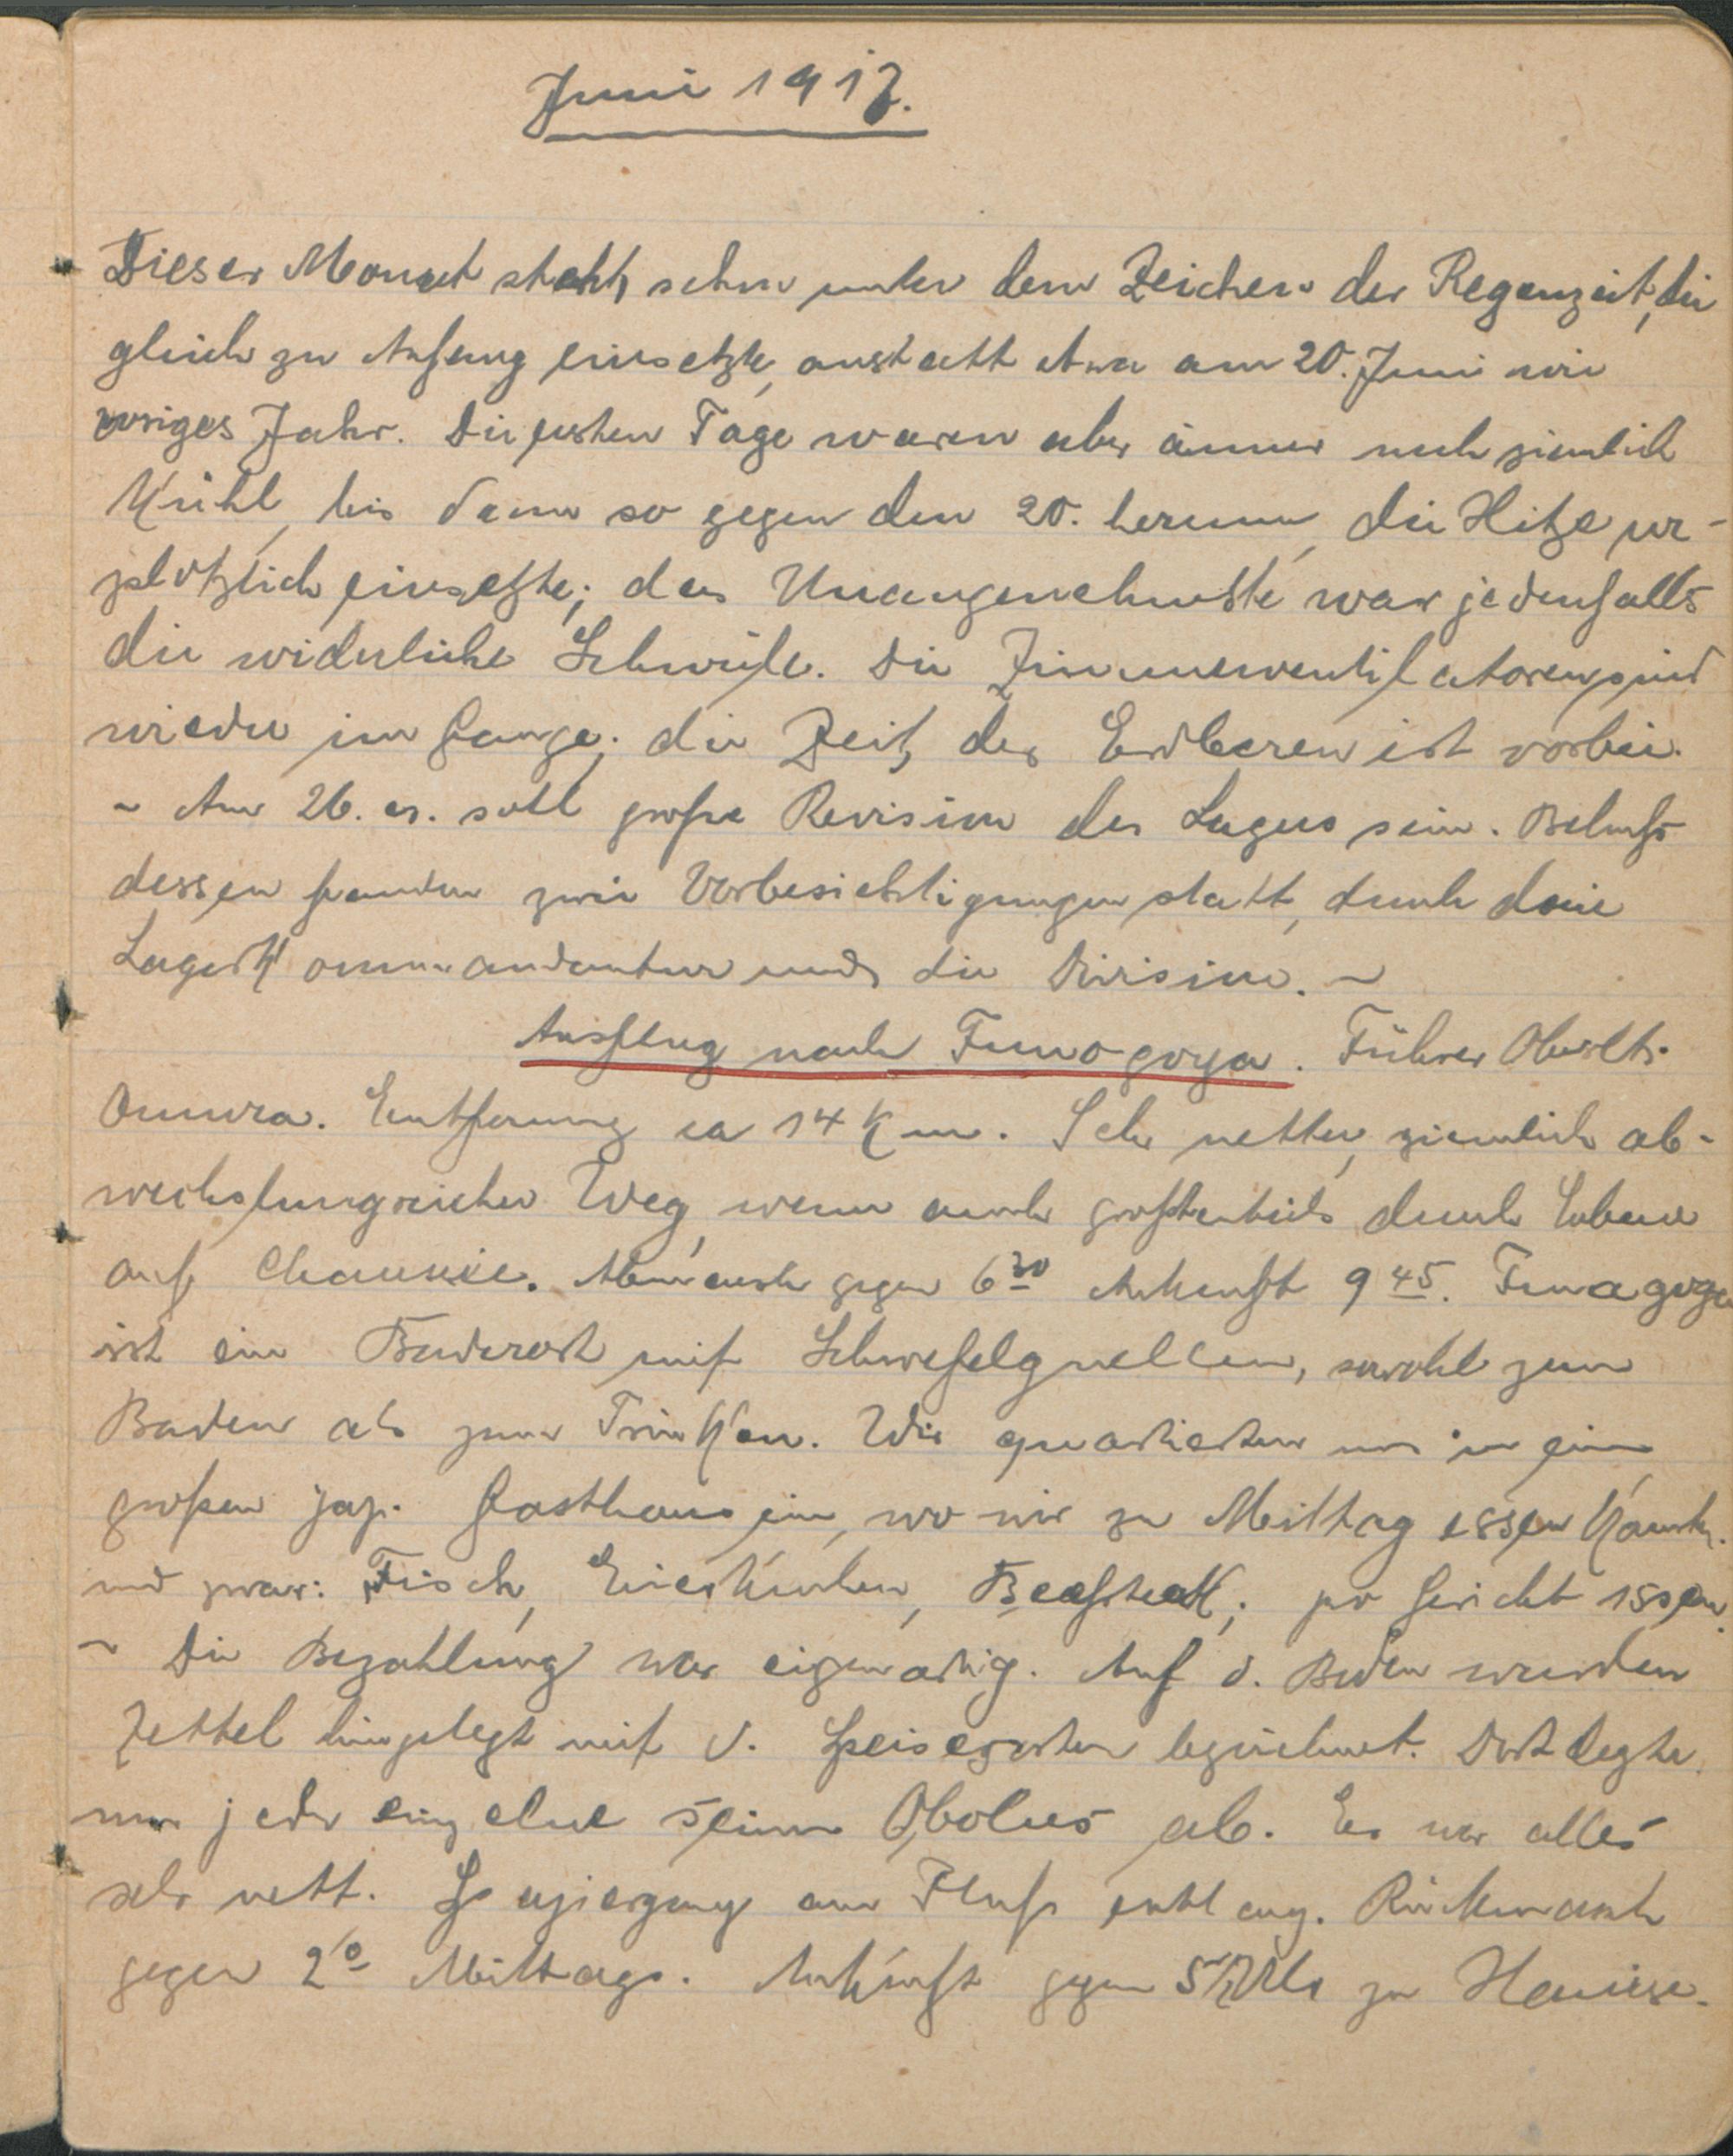 Juni 1917.
Dieser Monat steht schon unter dem Zeichen der Regenzeit, die
gleich zu Anfang einsetzte, anstatt etwa am 20. Juni wie
voriges Jahr. Die ersten Tage waren aber immer noch ziemlich
kühl, bis dann so gegen den 20. herum, die Hitze ur-
plötzlich einsetzte; das Unangenehmste war jedenfalls
die widerliche Schwüle. Die Zimmerventilatoren sind
wieder im Gange; die Zeit der Erdbeeren ist vorbei.
~ Am 26. er. soll große Revision des Lagers sein. Behufs
dessen fanden zwei Vorbesichtigungen statt, durch die
Lagerkommandantur und die Division. ~
Ausflug nach Funogoya. Führer Oberlt.
Omura. Entfernung ca 14 km. Sehr netter, ziemlich ab-
wechslungreicher Weg, wenn auch großtenteils durch Ebene
auf Chaussee. Abmarsch gegen 6 30 Ankunft 9 45. Funagoya
ist ein Badeort mit Schwefelquellen, sowohl zum
Baden als zum Trinken. Wir quartierten uns in ein
großen jap. Gasthaus ein, wo wir zu Mittag essen konnten.
und zwar: Fisch, Eierkuchen, Beafsteak; pro Gericht 15 sen.
~ Die Bezahlung war eigenartig. Auf d. Boden wurden
Zettel hingelegt mit d. Speisearten bezeichnet. Dort legte
nun jeder einzelne seinen Obolus ab. Es war alles
sehr nett. Spaziergang am Fluß entlang. Rückmarsch
gegen 2 0 Mittags. Ankunft gegen 5 1/2 Uhr zu Hause.